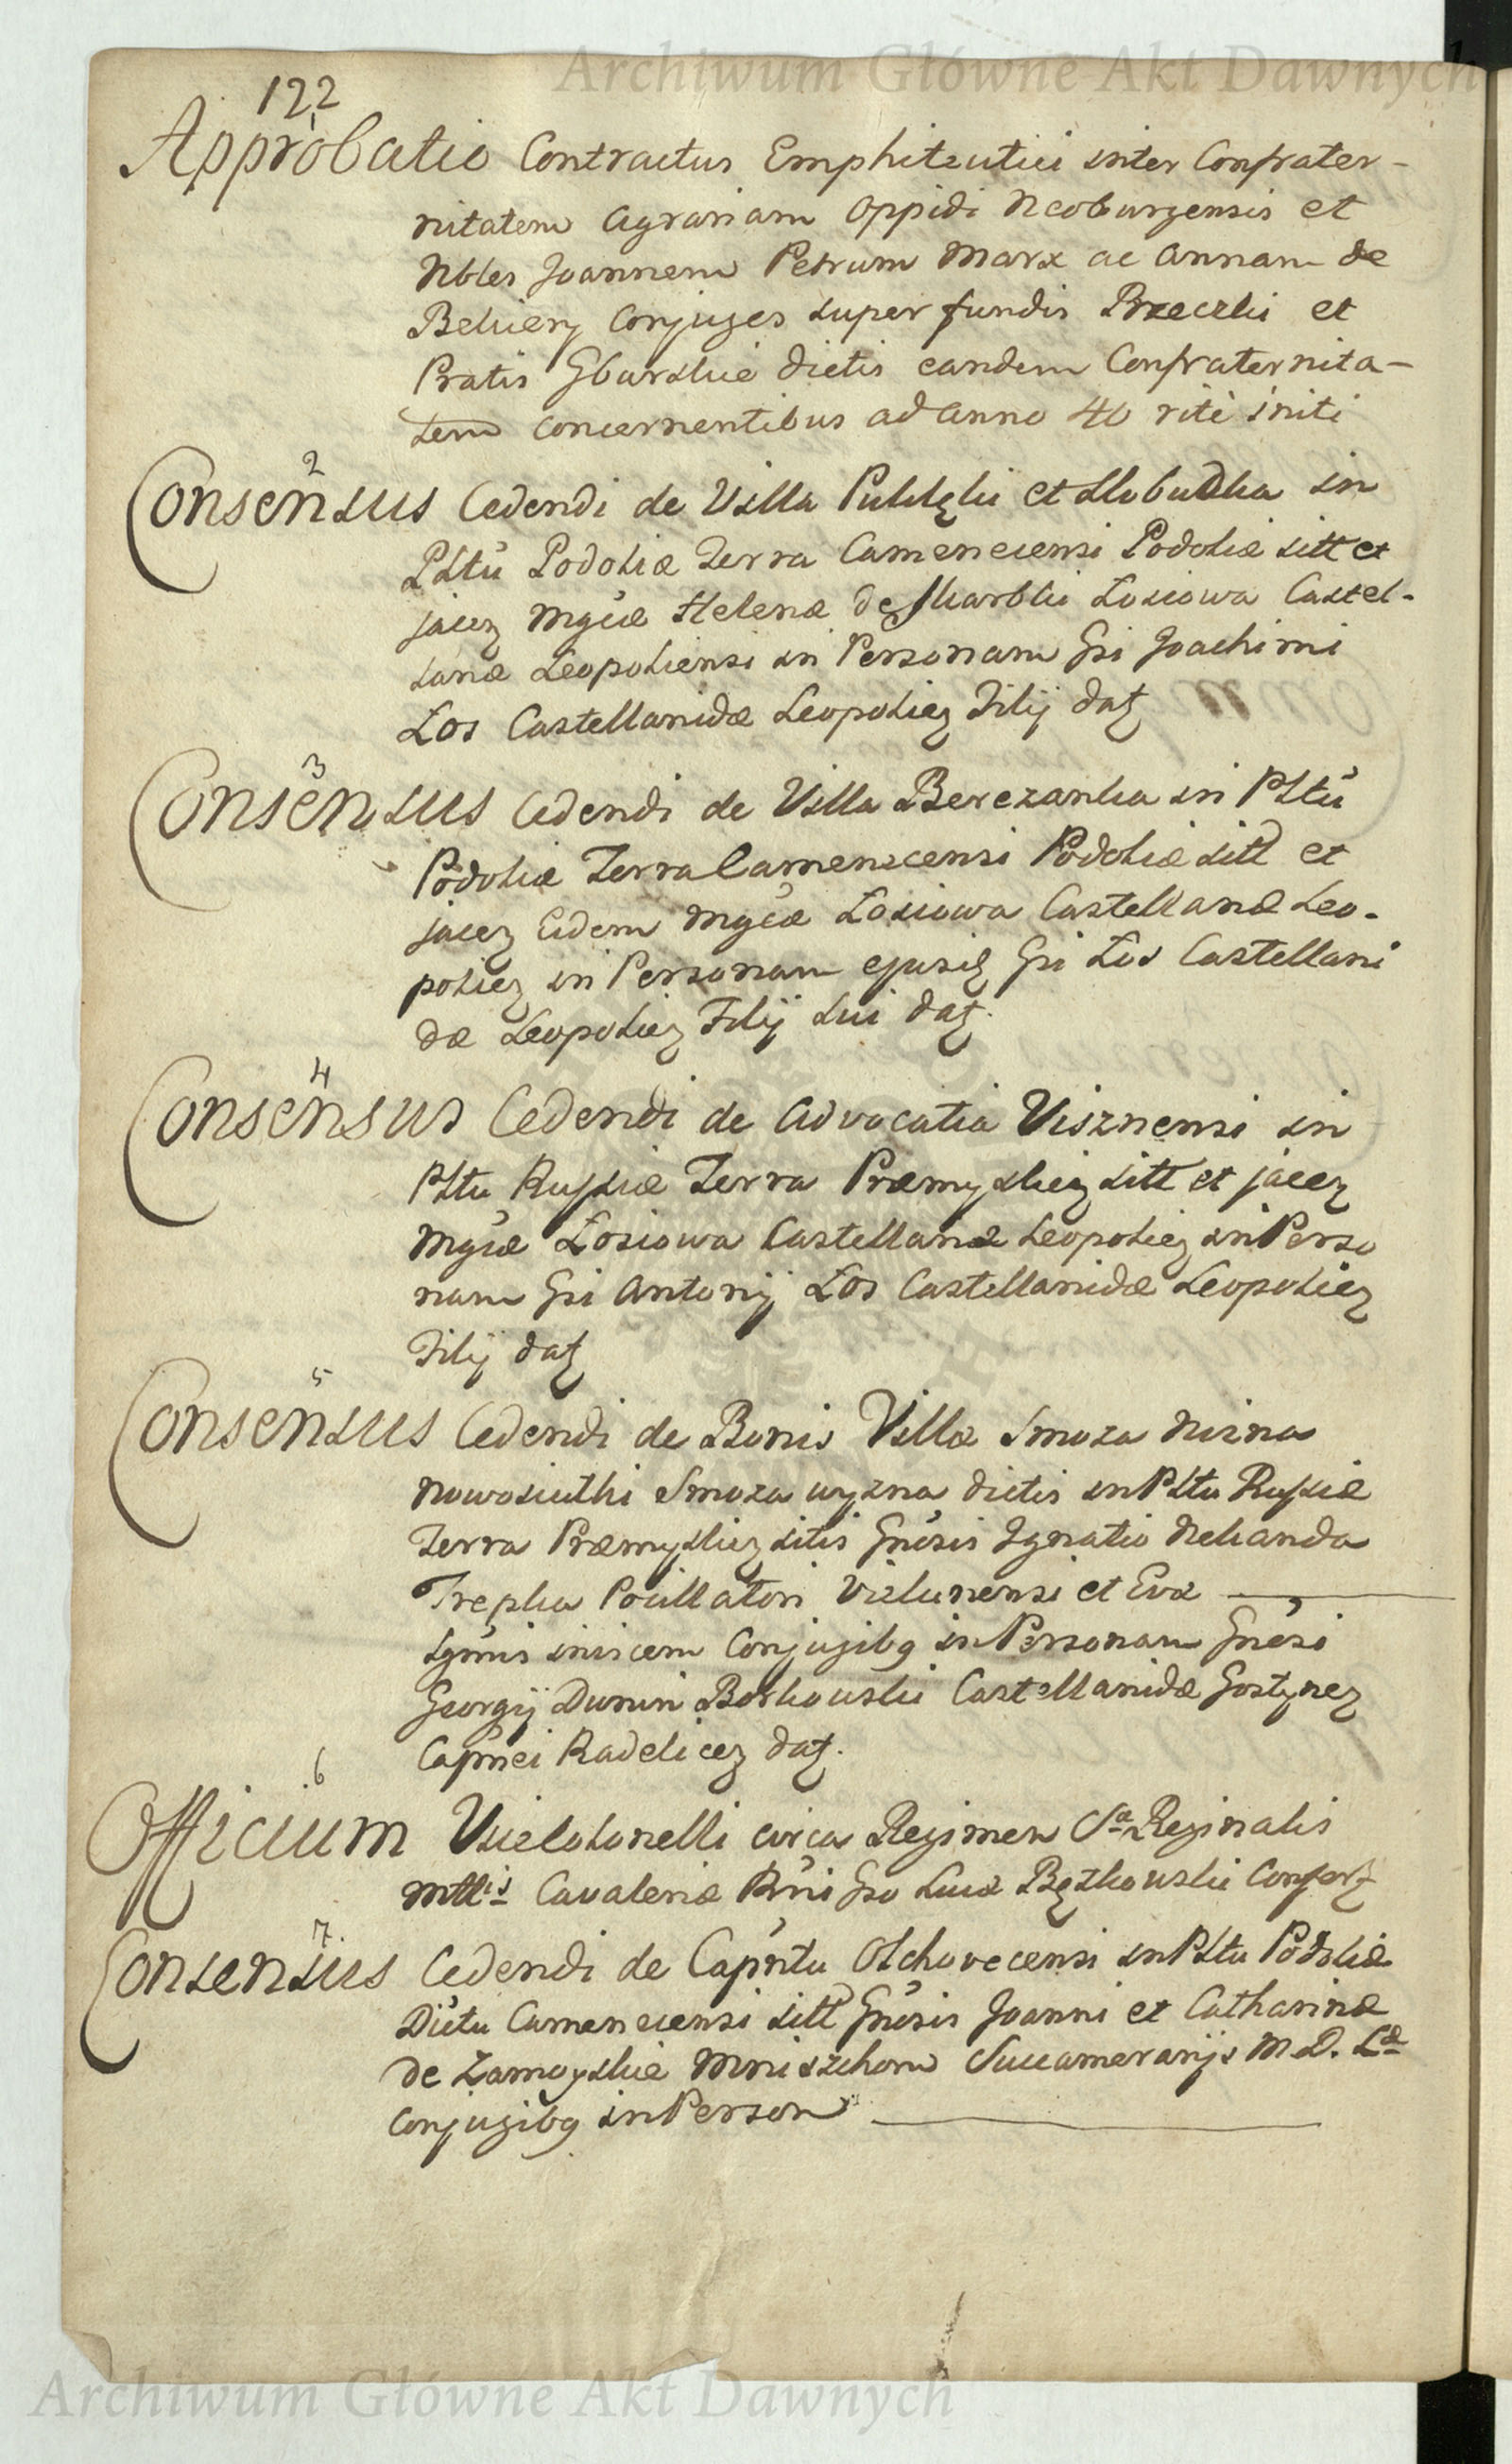 Archiwum Główne Akt Dawnych
122
1
Approbatio Contractus Emphiteutici inter Confrater-
nitatem Agrariam Oppidi Neoburgensis et
Nbles Joannem Petrum Marx ac Annam de
Conjuges super fundis et
Pratis Gburskie dictis eandem Confraternita-
tem concernentibus ad Anno 40 rite initi
2
Consensus Cedendi de Villa et Slobudka in
Pltu Podoliæ Terra Camenecensi Podoliæ sitt et
jacen Mgcæ Helenæ de Skarbki Łosiowa Castel-
lanæ Leopoliensi in Personam Gsi Joachimi
Łos Castellanidæ Leopolien Filij dat
3
Consensus Cedendi de Villa Berezanka in Pltu
Podoliæ Terra Camenecensi Podoliæ sitt et
jacen Eidem Mgcæ Łosiowa Castellanæ Leo-
polien in Personam ejusd Gsi Łos Castellani
dæ Leopolien Filij sui dat.
4
Consensus Cedendi de Advocatia Visznensi in
Pltu Russiæ Terra Præmyslien sitt et jacen
Mgcæ Łosiowa Castellanæ Leopolien in Perso
nam Gsi Antonij Łos Castellanidæ Leopolien
Filij dat
5
Consensus Cedendi de Bonis Villæ Smoza Nizna
Nowosiułki Smoza wyzna dictis in Pltu Russiæ
Terra Præmyslien sitis Gnosis Ignatio Nekanda
Trepka Pocillatori Vielunensi et Evæ
invicem Conjugibg in Personam Gnosi
Georgij Dunin Borkowski Castellanidæ Gostynen
Capnei Radelicen dat.
6
Officium Vicecolonelli circa Regimen Sæ Reginalis
Mttis Cavaleriæ Gso Lucæ Confert
7.
Consensus Cedendi de Capntu Olchovecensi in Pltu Podoliæ
Dictu Camenecensi sitt Gnosis Joanni et Catharinæ
de Zamoyskie Mniszchom Succamerarijs M. D. L.
Conjugibg in Person
Archiwum Główne Akt Dawnych